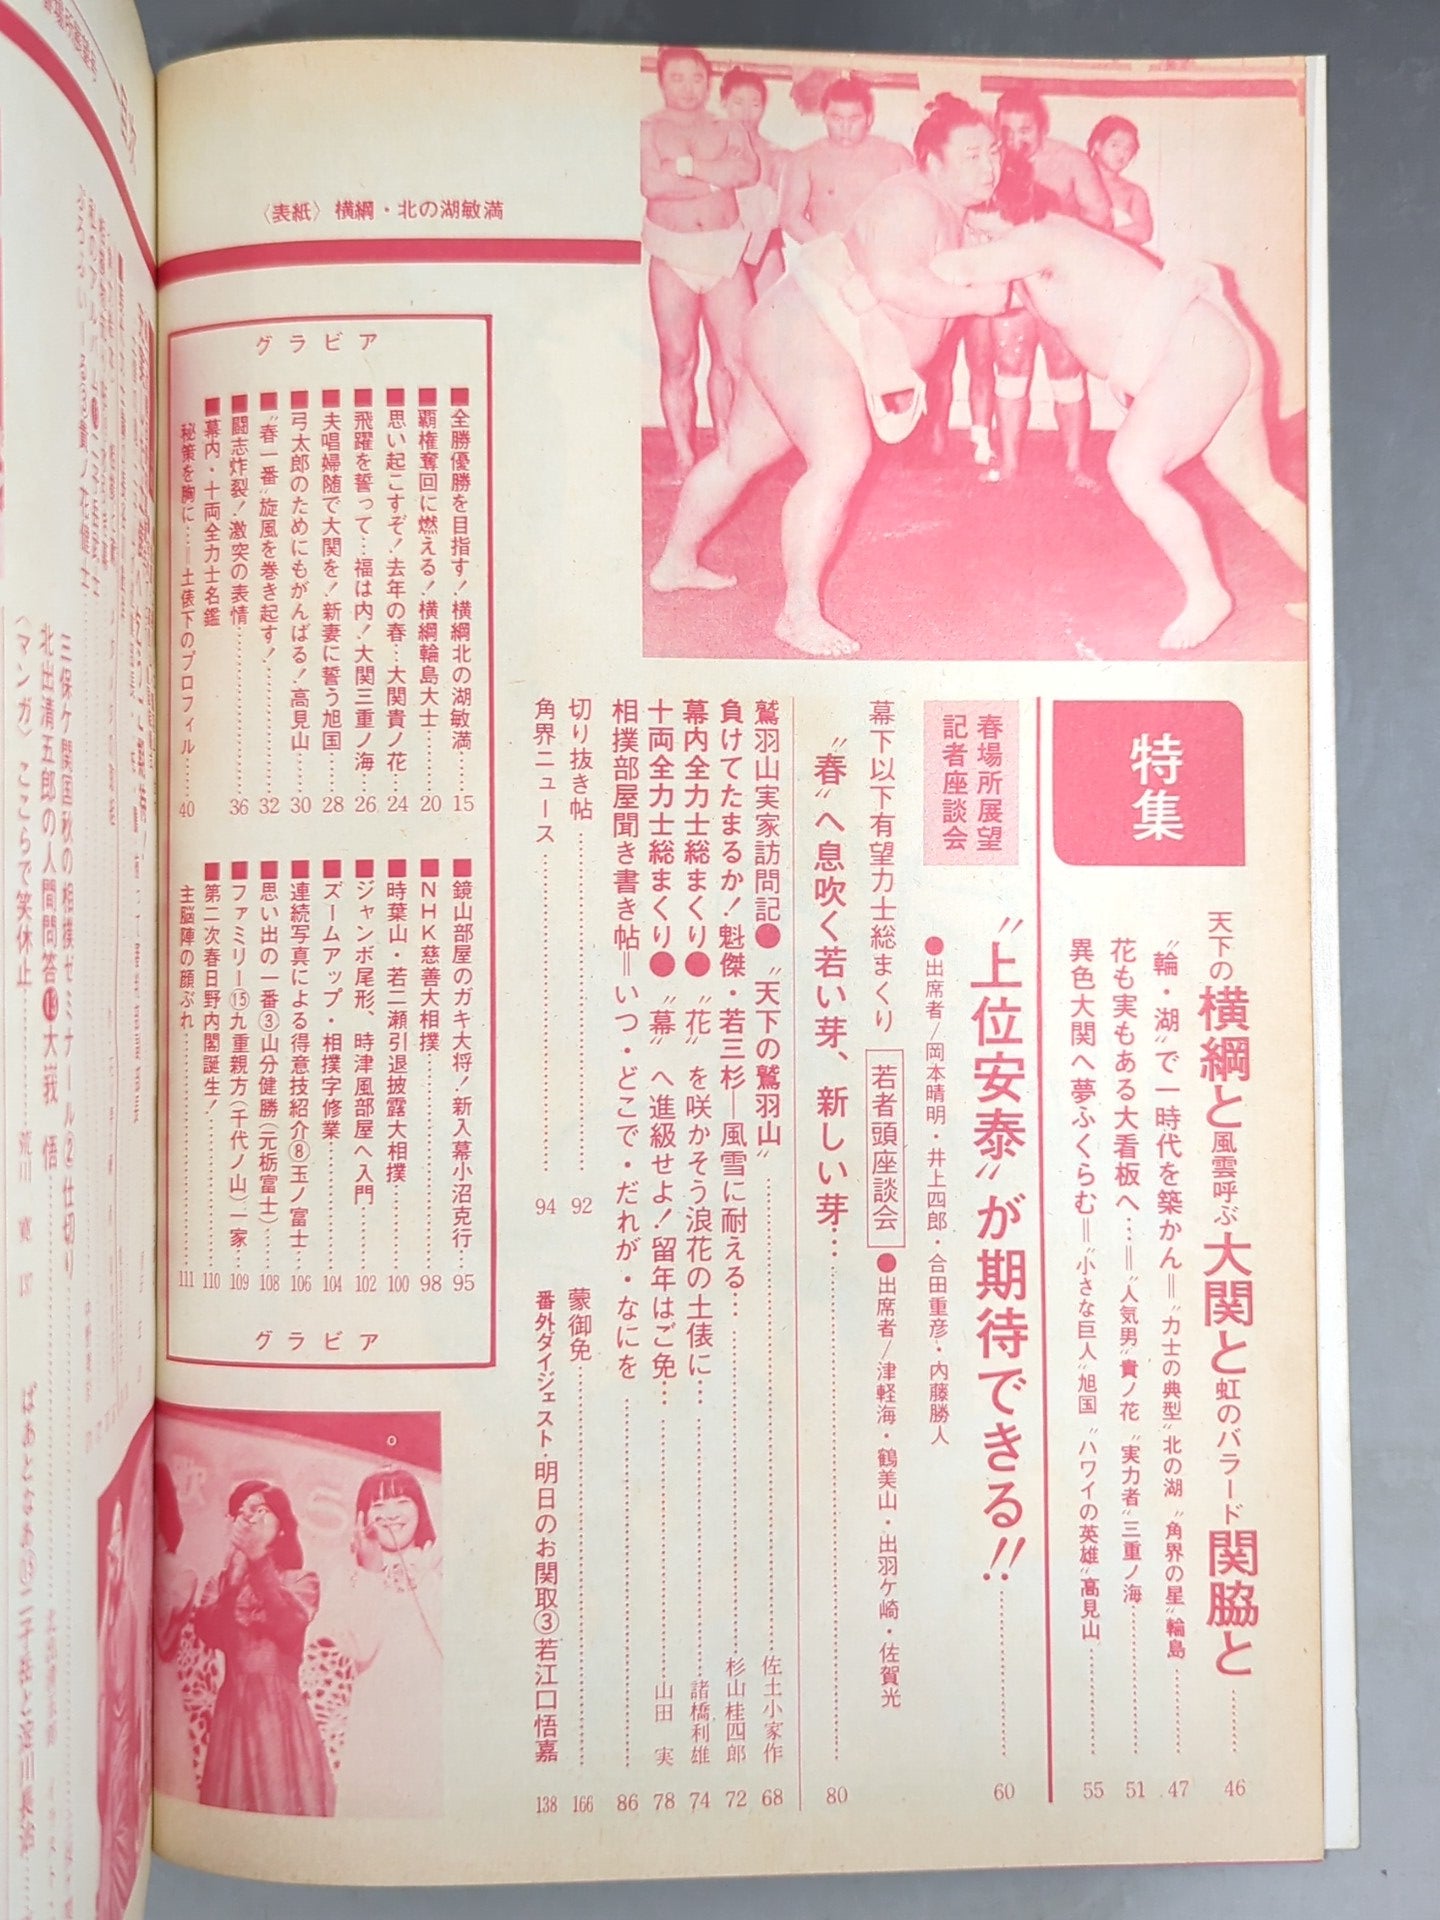 〈表紙〉横綱・北の湖敏満
特集
天下の横綱と風雲呼ぶ大関と虹のバラード関脇と……46
〝輪・湖〟で一時代を築かん＝〝力士の典型〟北の湖　〝角界の星〟輪島……47
花も実もある大看板へ…＝〝人気男〟貴ノ花　〝実力者〟三重ノ海……51
異色大関へ夢ふくらむ＝〝小さな巨人〟旭国　〝ハワイの英雄〟高見山……55
春場所展望
記者座談会
〝上位安泰〟が期待できる!!……60
●出席者/岡本晴明・井上四郎・合田重彦・内藤勝人
幕下以下有望力士総まくり　若者頭座談会　●出席者/津軽海・鶴美山・出羽ケ崎・佐賀光
〝春〟へ息吹く若い芽、新しい芽……80
鷲羽山実家訪問記●〝天下の鷲羽山〟……佐土小家作　68
負けてたまるか！魁傑・若三杉―風雪に耐える……杉山桂四郎　72
幕内全力士総まくり●〝花〟を咲かそう浪花の土俵に……諸橋利雄　74
十両全力士総まくり●〝幕〟へ進級せよ！留年はご免……山田　実　78
相撲部屋聞き書き帖＝いつ・どこで・だれが・なにを……86
切り抜き帖……92
蒙御免……166
角界ニュース……94
番外ダイジェスト・明日のお関取③若江口悟嘉　138
グラビア
■全勝優勝を目指す！横綱北の湖敏満…15
■覇権奪回に燃える！横綱輪島大士……20
■思い起こすぞ！去年の春…大関貴ノ花…24
■飛躍を誓って…福は内！大関三重ノ海…26
■夫唱婦随で大関を！新妻に誓う旭国…28
■弓太郎のためにもがんばる！高見山…30
■〝春一番〟旋風を巻き起す！……32
■闘志炸裂！激突の表情……36
■幕内・十両全力士名鑑
秘策を胸に…＝土俵下のプロフィル……40
■鏡山部屋のガキ大将！新入幕小沼克行…95
■NHK慈善大相撲……98
■時葉山・若二瀬引退披露大相撲……100
■ジャンボ尾形、時津風部屋へ入門……102
■ズームアップ・相撲字修業……104
■連続写真による得意技紹介⑧玉ノ富士…106
■思い出の一番③山分健勝（元栃富士）…108
■ファミリー⑮九重親方（千代ノ山）一家…109
■第二次春日野内閣誕生！……110
主脳陣の顔ぶれ……111
グラビア
三保ケ関国秋の相撲ゼミナール②仕切り
北出清五郎の人間問答⑬大峩　悟
〈マンガ〉ここらで笑休止……荒川
137